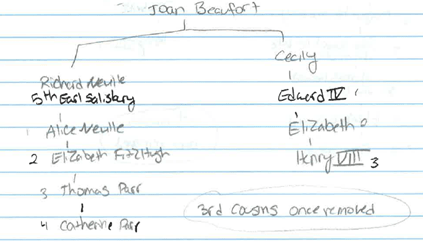 Joan Beaufort
Richard Neville
5th Earl Salisbury
Alice Neville
2 Elizabeth FitzHugh
3 Thomas Parr
4 Catherine Parr
Cecily
Edward IV
Elizabeth
Henry VIII 3
3rd Cousins once removed